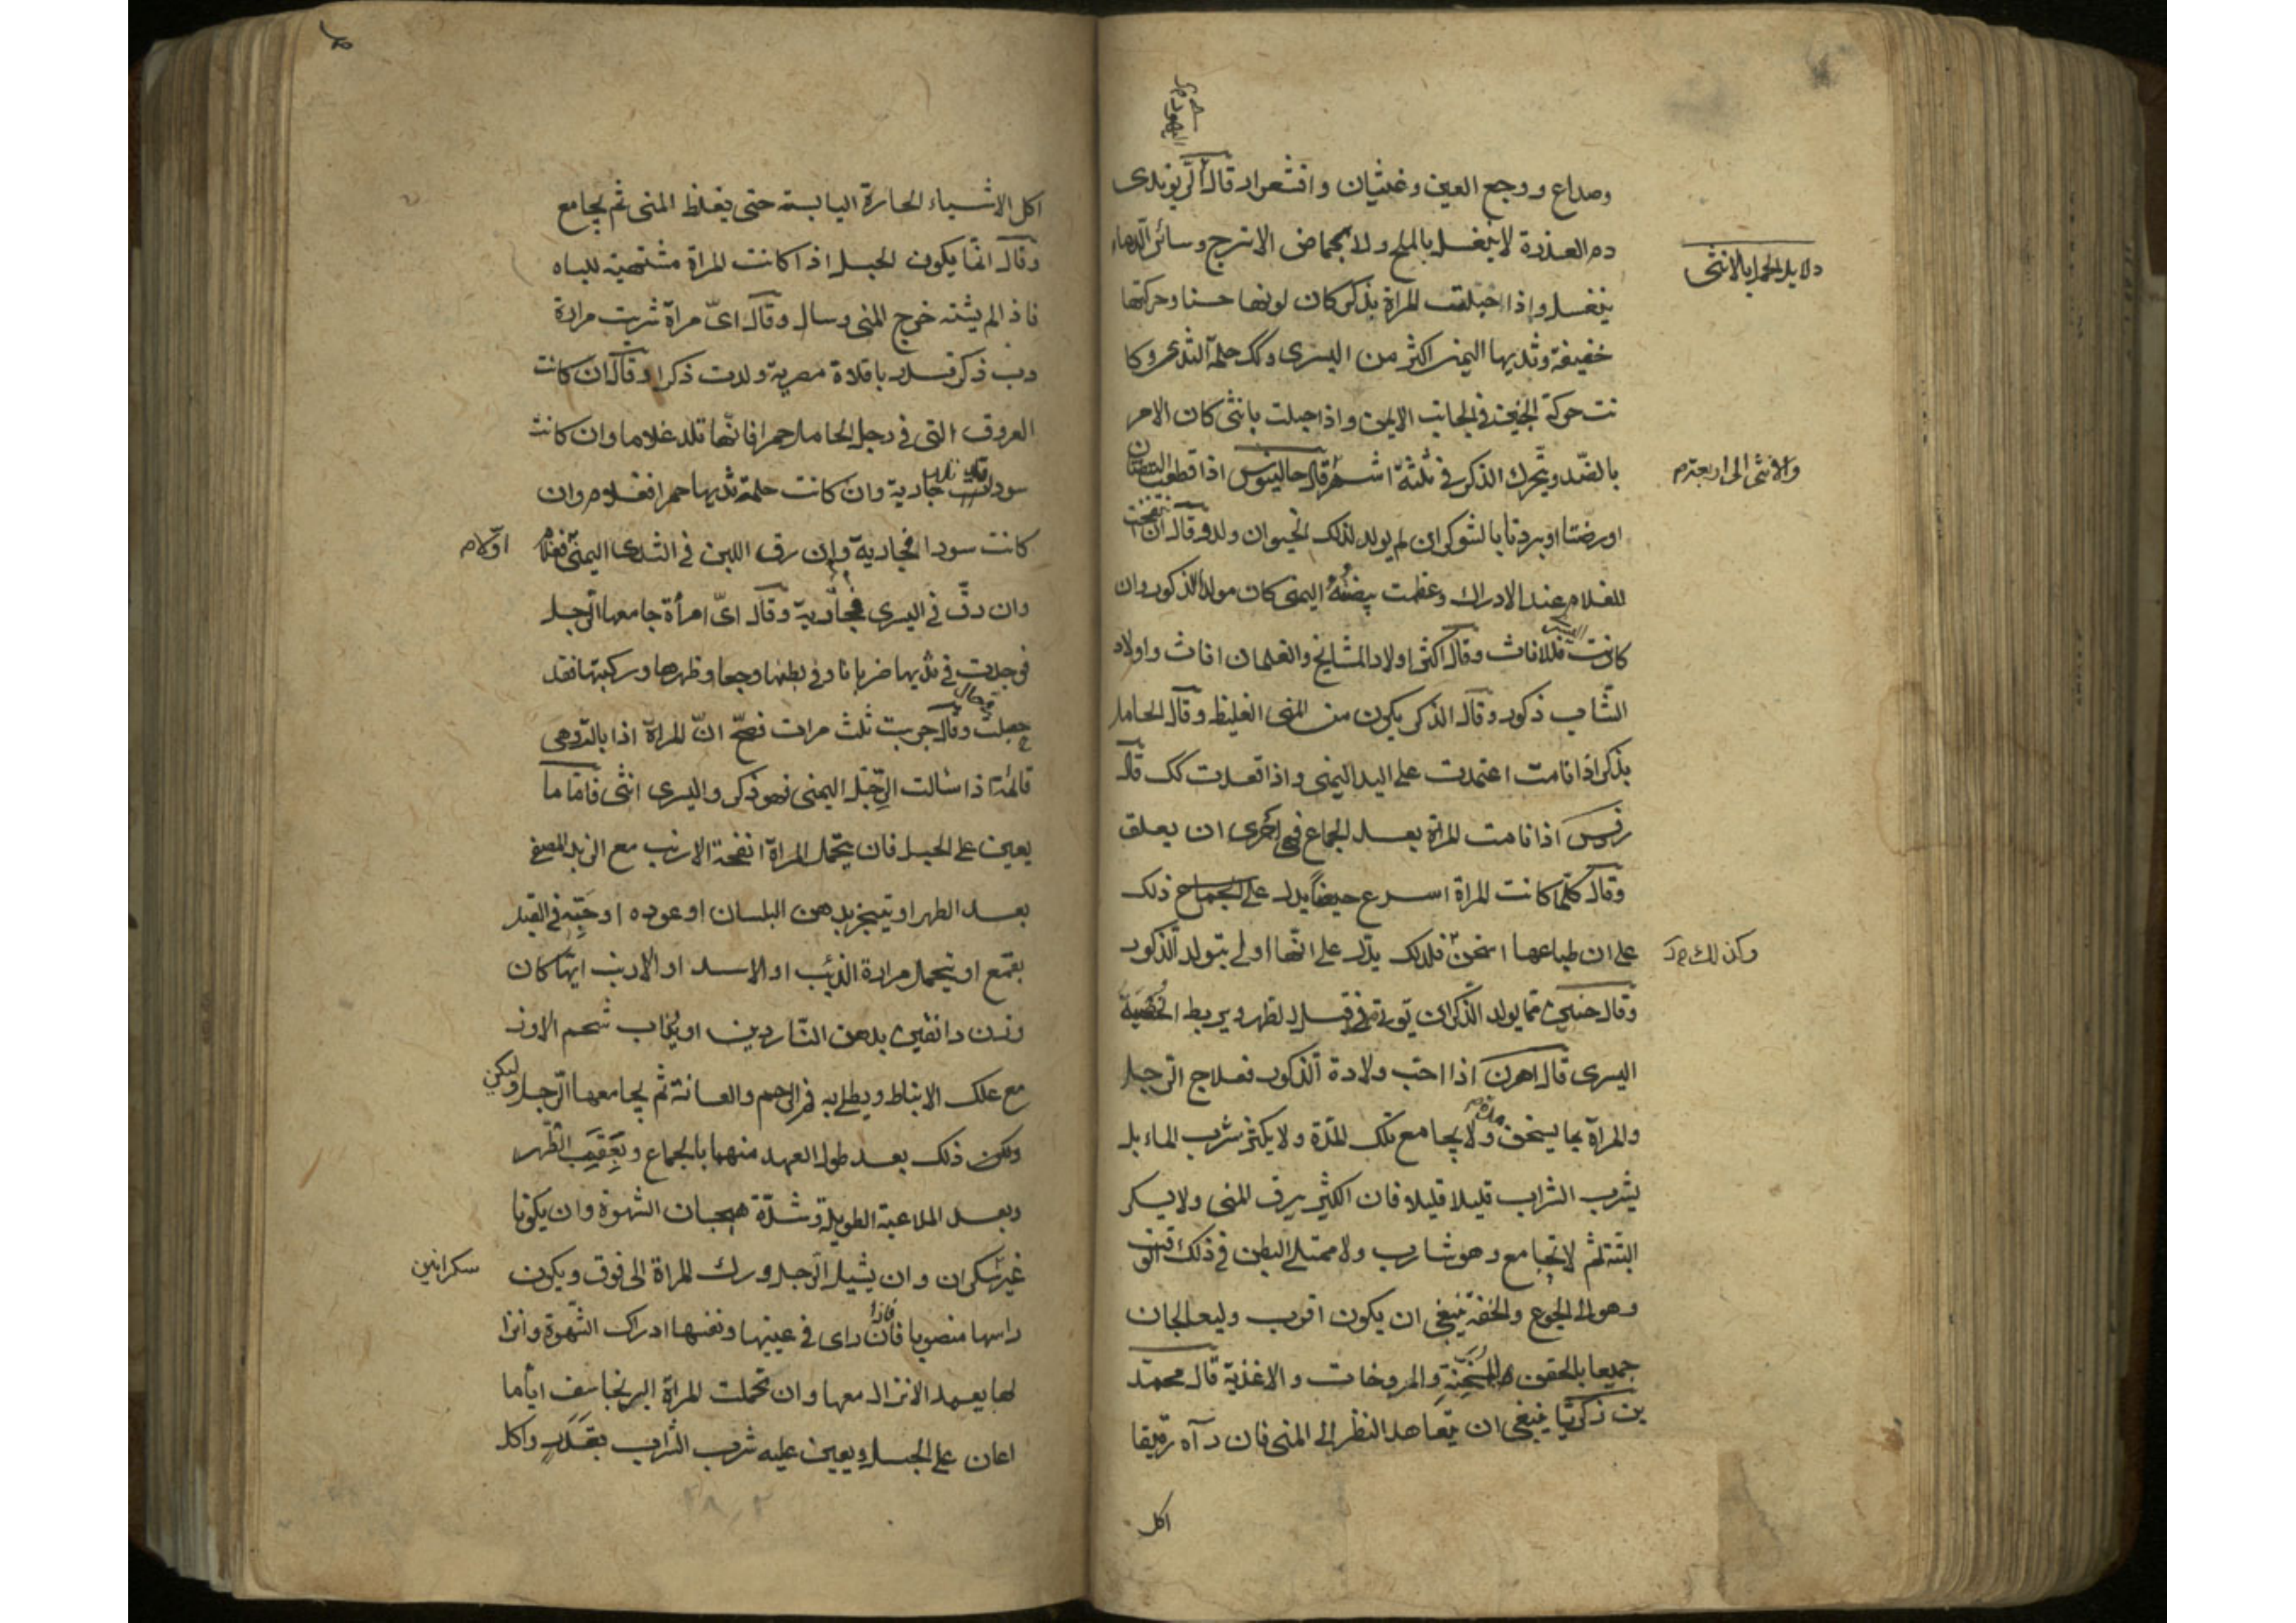 وصداع ووجع العين وغثيان واقشعرار قال
دم العذرة لا ينغسل بالملح ولا بحماض الاترج وسائر الدماء
ينغسل واذا حبلت المراة بذكر كان لونها حسنا وحركتها
خفيفة وثديها اليمنى اكثر من اليسرى وكك حلمة الثدى وكا
نت حركة الجنين فى الجانب الايمن واذا حبلت بانثى كان الامر
بالضد ويتحرك الذكر فى ثلثة اشهر قال جالينوس اذا قطعت البيضتان
اورضتا او بردتا بالشوكران لم يولد لذلك الحيوان ولد وقال ان انتفخت
للغلام عند الادراك وعظمت بيضته اليمنى كان مولد الذكور وان
كانت فللاناث وقال اكثر اولاد المشايخ والغلمان اناث واولاد
الشاب ذكور وقال الذكر يكون من المنى الغليظ وقال الحامل
بذكر اذا قامت اعتمدت على اليد اليمنى واذا قعدت كك قال
اذا نامت المراة بعد الجماع فهى احرى ان يعلق
وقال كلما كانت المراة اسرع حيضا يدل على ذلك
على ان طباعها اسخن فلذلك يدل على انها اولى بتولد الذكور
وقال حنين مما يولد الذكران قبل الطهر ويربط الخصية
اليسرى قال اهرن اذا احب ولادة الذكور فعلاج الرجل
والمراة بما يسخن ولا يجامع تلك المدة ولا يكثر شرب الماء بل
يشرب الشراب قليلا قليلا فان الكثير يرق المنى ولا يسكر
البتة ثم لا يجامع وهو شارب ولا ممتلى البطن فى ذلك الوقت
وهو الى الجوع والخفة ينبغى ان يكون اقرب وليعالجان
جميعا بالحقن المسخنة والمروخات والاغذية قال محمد
بن زكريا ينبغى ان يتعاهد النظر الى المنى فان رآه رقيقا
اكل
دلايل الحمل بالانثى
والانثى الى اربعة م
وكذلك
اكل الاشياء الحارة اليابسة حتى يغلظ المنى ثم يجامع
وقال انما يكون الحبل اذا كانت المراة مشتهية للباه
فاذا لم يشته خرج المنى وسال وقال اى مراة شربت مرارة
دب ذكر قدر باقلاة مصرية ولدت ذكرا وقال ان كانت
العروق التى فى رجل الحامل حمرا فانها تلد غلاما وان كانت
سودا جارية وان كانت حلمة ثديها حمرا فغلام وان
كانت سودا فجارية وان رق اللبن فى الثدى اليمنى فغلام
وان رق فى اليسرى فجارية وقال اى امرأة جامعها الرجل
فوجدت فى ثديها ضربانا وفى بطنها وجعا وظهرها وركبتها فقد
حبلت وقال جربت ثلث مرات فصح ان المراة اذا بالت وهى
قائمة اذا شالت الرجل اليمنى فهو ذكر واليسرى انثى فاما ما
يعين على الحبل فان يتحمل المراة انفحة الارنب مع الزبد المصفى
بعد الطهر او يتبخر بدهن البلسان او عوده او حبه فى القبل
بقمع او يتحمل مرارة الذئب او الاسد او الارنب ايها كان
وزن دانقين بدهن الناردين او يذاب شحم الاوز
مع علك الانباط ويطلى به فم الرحم والعانة ثم يجامعها الرجل وليكن
ذلك بعد طول العهد منهما بالجماع وبعقب الطهر
وبعد الملاعبة الطويلة وشدة هيجان الشهوة وان يكونا
غير سكران وان يشيل الرجل ورك المراة الى فوق ويكون
راسها منصوبا فاذا راى فى عينها ونفسها ادراك الشهوة وانزا
لها يعمد الانزال معها وان تحملت المراة البرنجاسف اياما
اعان على الحبل ويعين عليه شرب الشراب بقدر واكل
او كلام
سكرانين